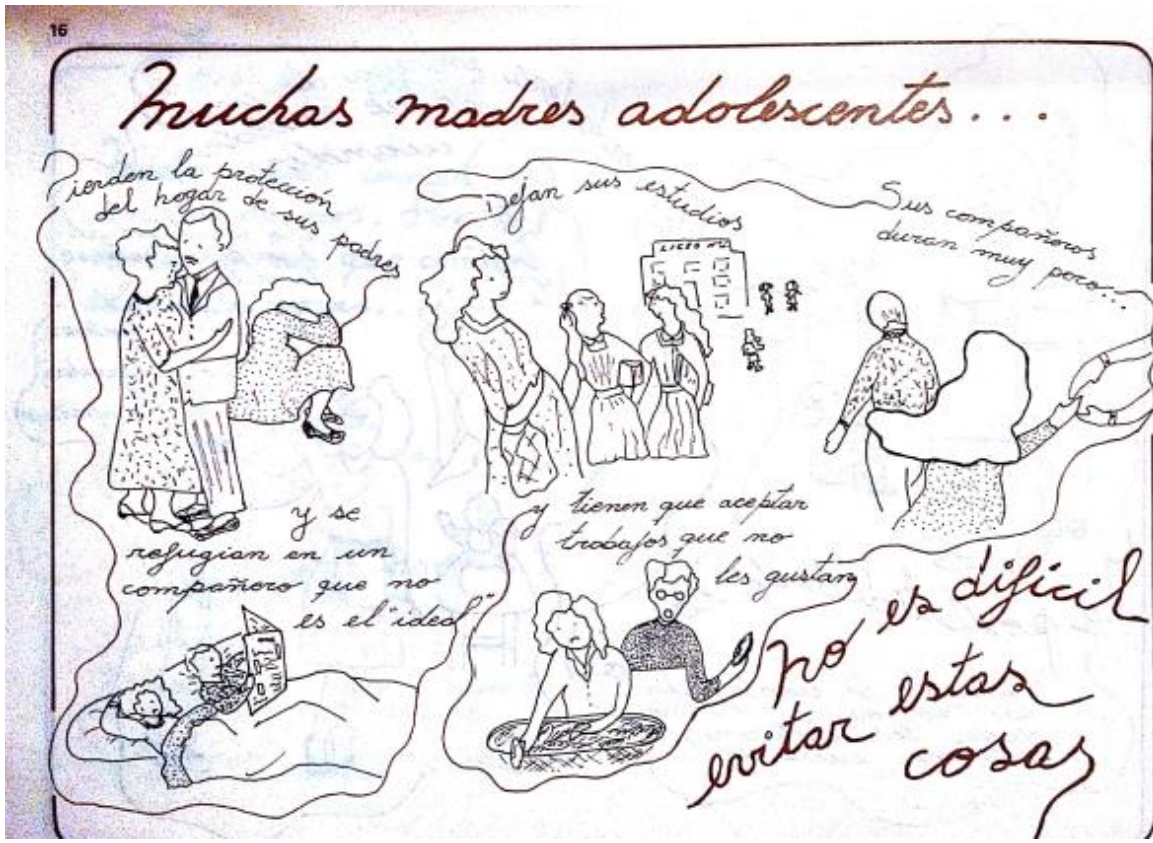 16
Muchas madres adolescentes...
Pierden la protección
del hogar de sus padres
y se
refugian en un
compañero que no
es el "ideal"
Dejan sus estudios
LICEO Nº2
y tienen que aceptar
trabajos que no
les gustan
Sus compañeros
duran muy poco...
no es difícil
evitar estas
cosas